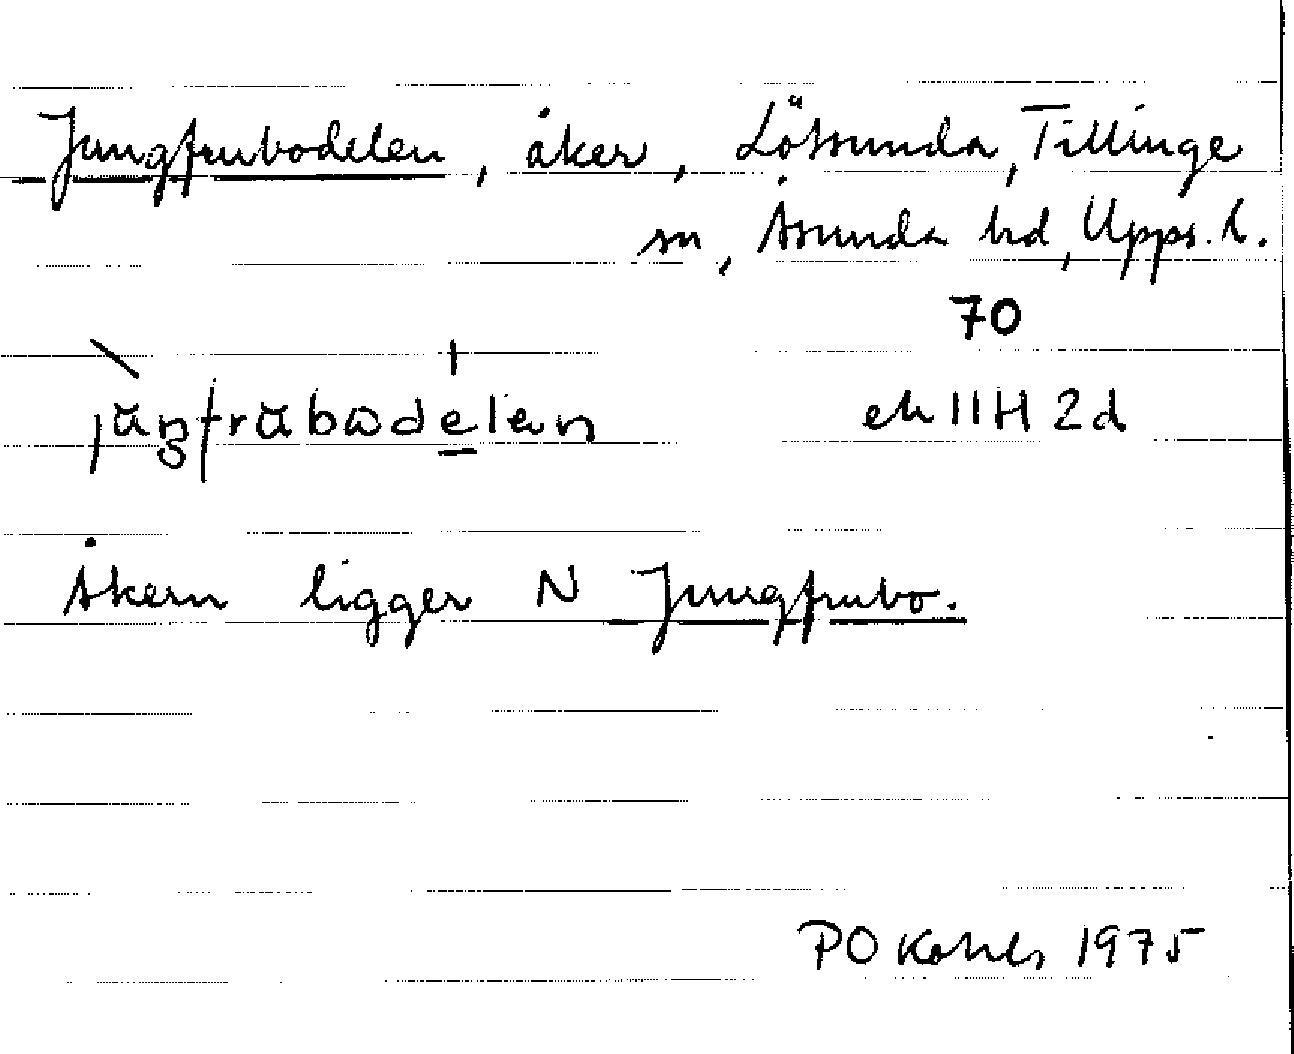 Jungfrubodelen, åker, Lötsunda, Tillinge
sn, Åsunda hd, Upps. l.
70
jŭŋfrŭbωdelən ek 11H 2d
Åkern ligger N Jungfrubo.
PO 1975